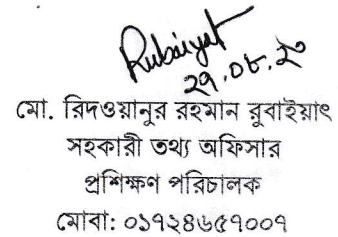 Rubaiyat
২৭.০৮.২৩
মো. রিদওয়ানুর রহমান রুবাইয়াৎ
সহকারী তথ্য অফিসার
প্রশিক্ষণ পরিচালক
মোবা: ০১৭২৪৬৫৭০০৭